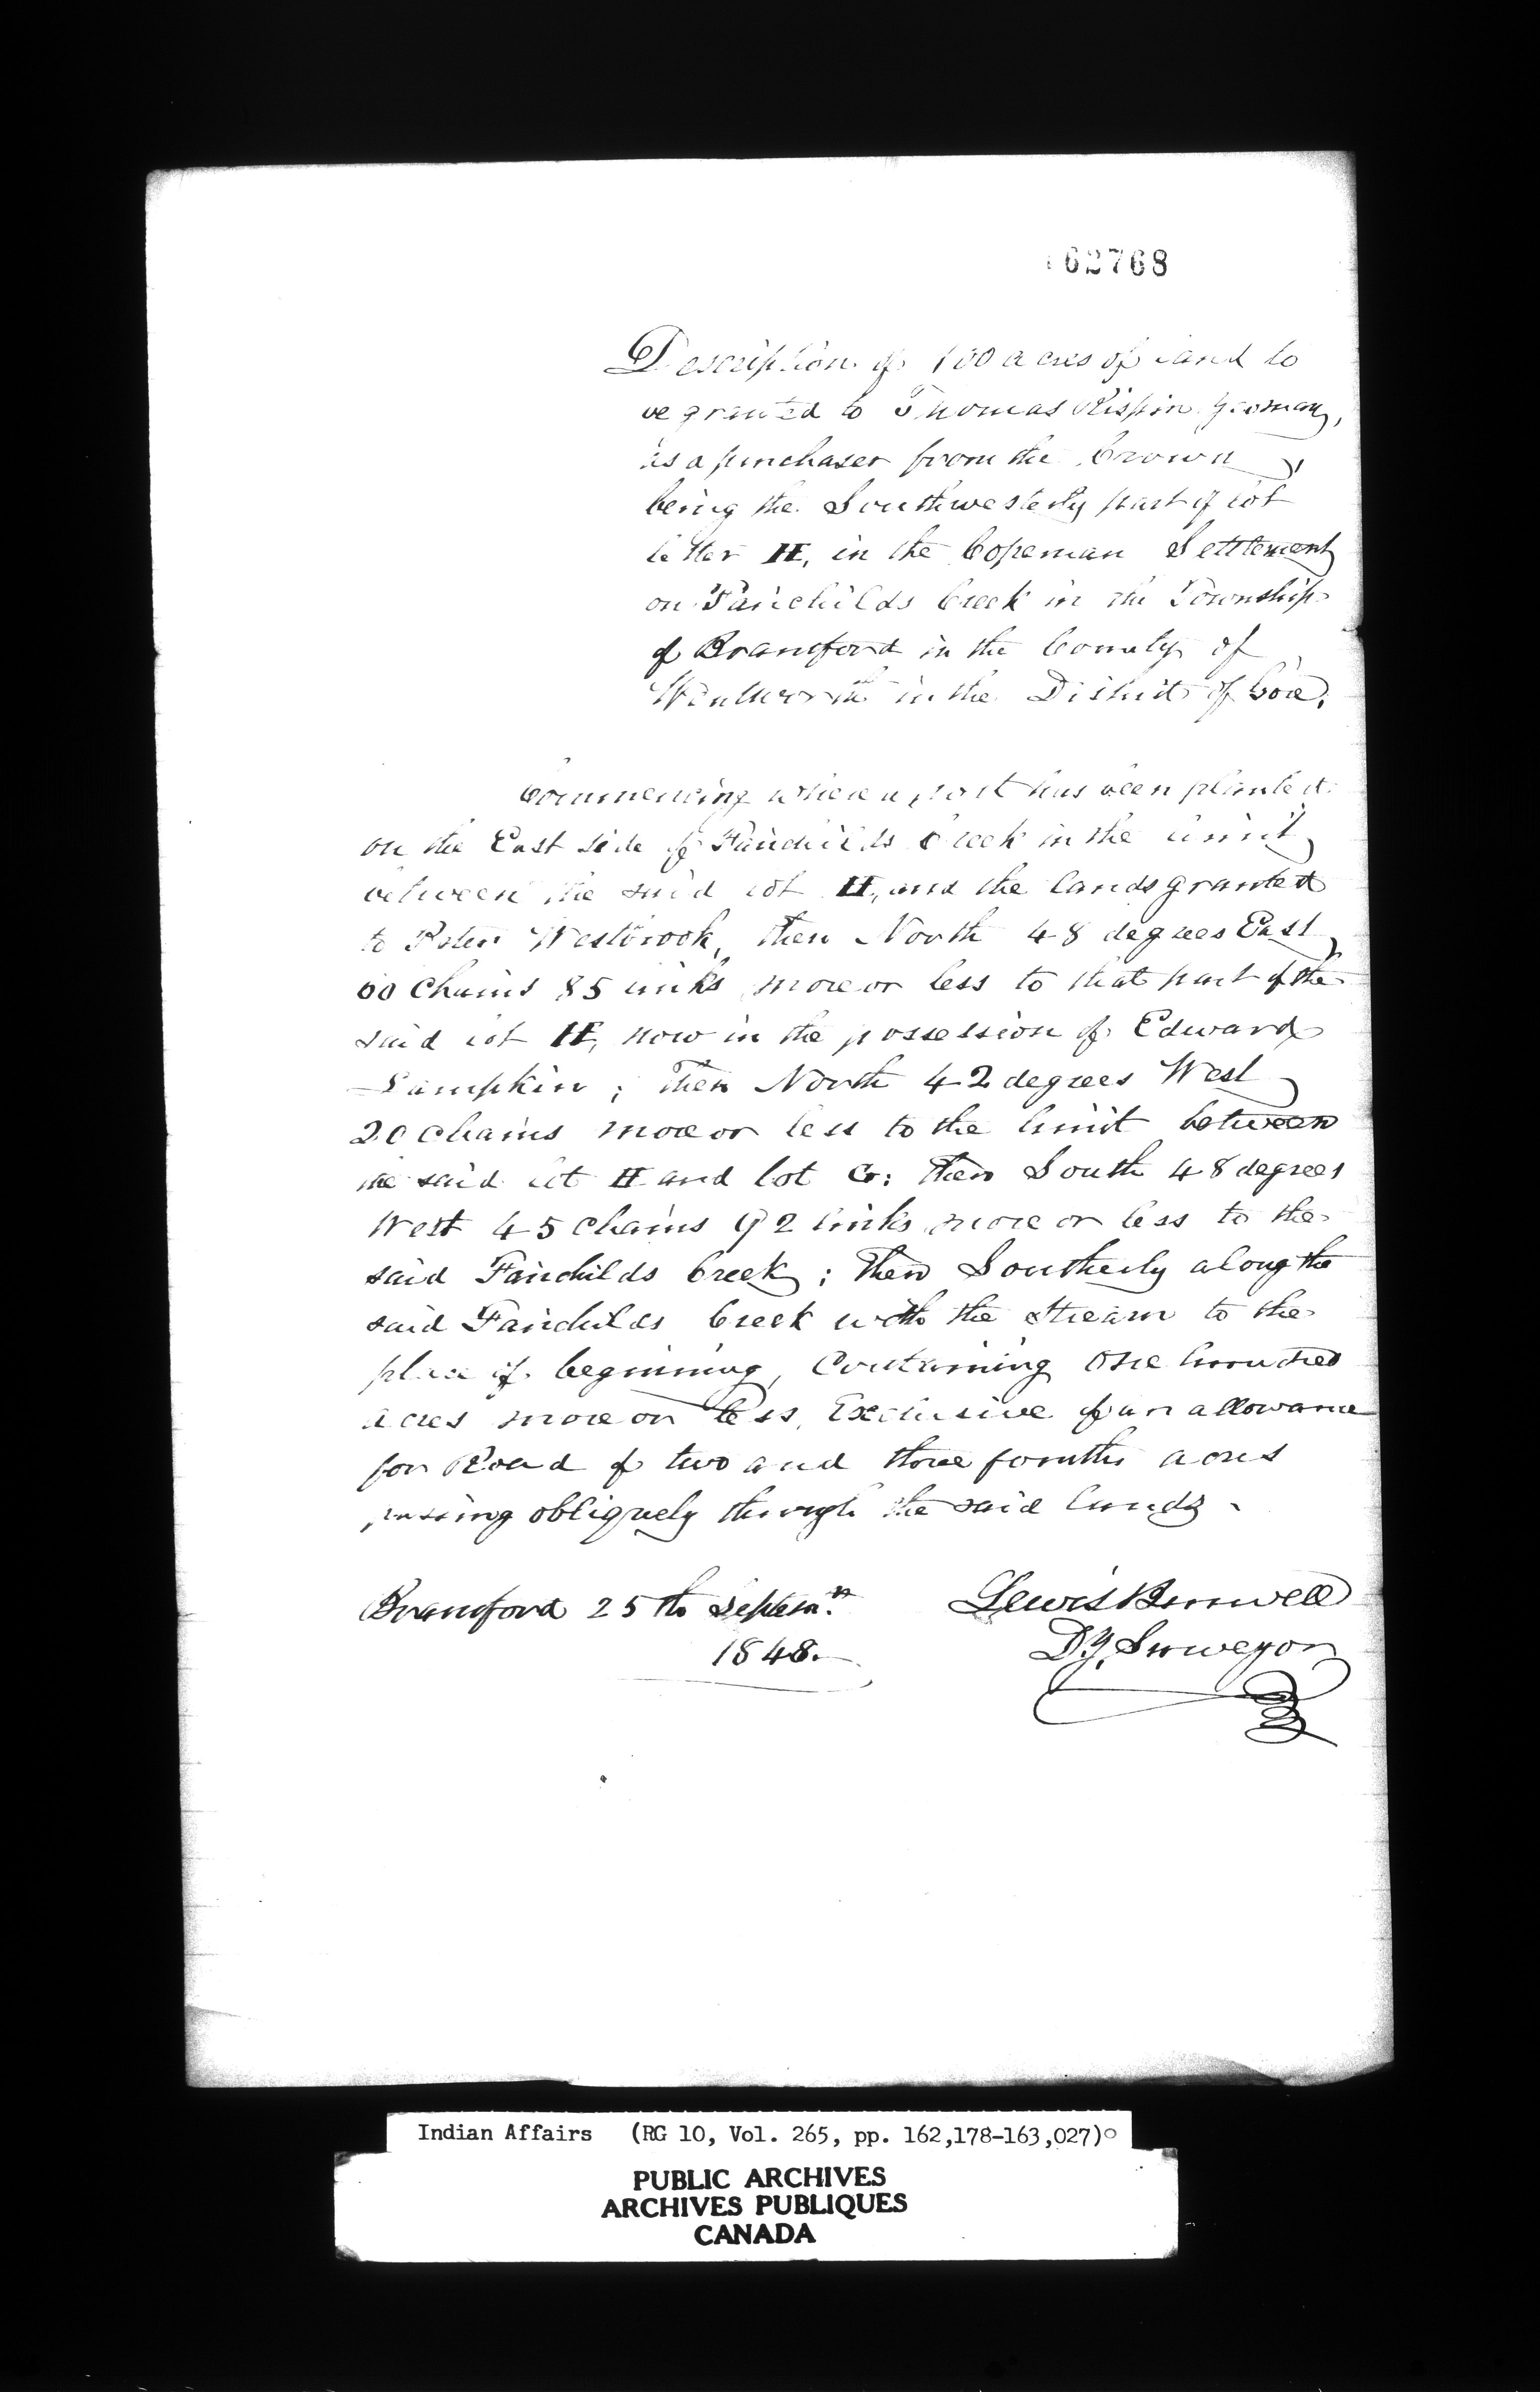 162768
Description of 100 acres of land to
be granted to Thomas Rispin Yeoman,
as a purchaser from the Crown,
being the Southwesterly part of lot
letter H, in the Copeman Settlement
on Fairchilds Creek in the Township
of Brantford in the County of
Wentworth in the District of Gore.
Commencing where a post has been planted
on the East side of Fairchilds Creek in the limit
between the said lot H, and the lands granted
to Peter Westbrook, then North 48 degrees East
60 Chains 85 links more or less to that part of the
said lot H, now in the possession of Edward
Lampkin; then North 42 degrees West
20 chains more or less to the limit between
the said lot H and lot G; then South 48 degrees
West 45 Chains 92 links more or less to the
said Fairchilds Creek; then Southerly along the
said Fairchilds Creek with the stream to the
place of beginning, Containing One hundred
acres more or less, Exclusive of an allowance
for Road of two and three fourths acres
passing obliquely through the said lands.
Brantford 25th Septemr.
1848.
Lewis Burwell
Dy. Surveyor
Indian Affairs (RG 10, Vol. 265, pp. 162,178-163,027)
PUBLIC ARCHIVES
ARCHIVES PUBLIQUES
CANADA